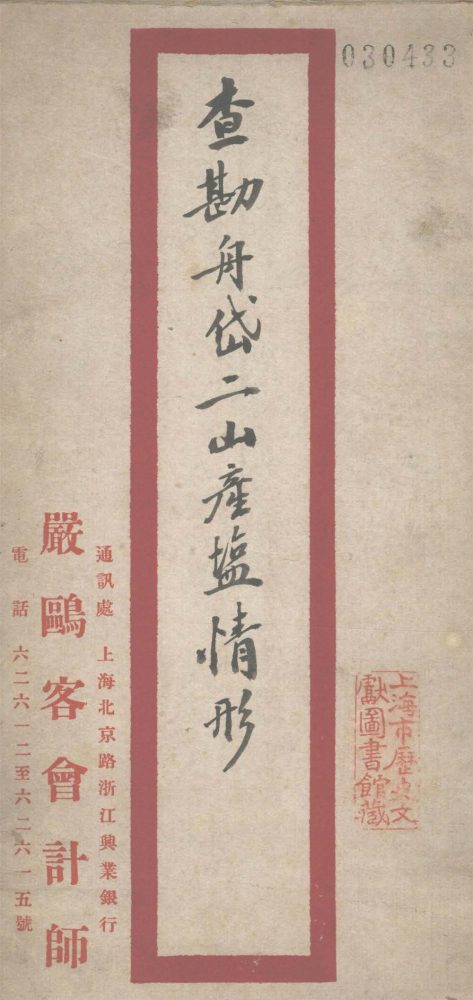 030433
查勘舟岱二山產塩情形
上海市歷史文
獻圖書館藏
通訊處 上海北京路浙江興業銀行
嚴鷗客會計師
電話 六二六一二至六二六一五號